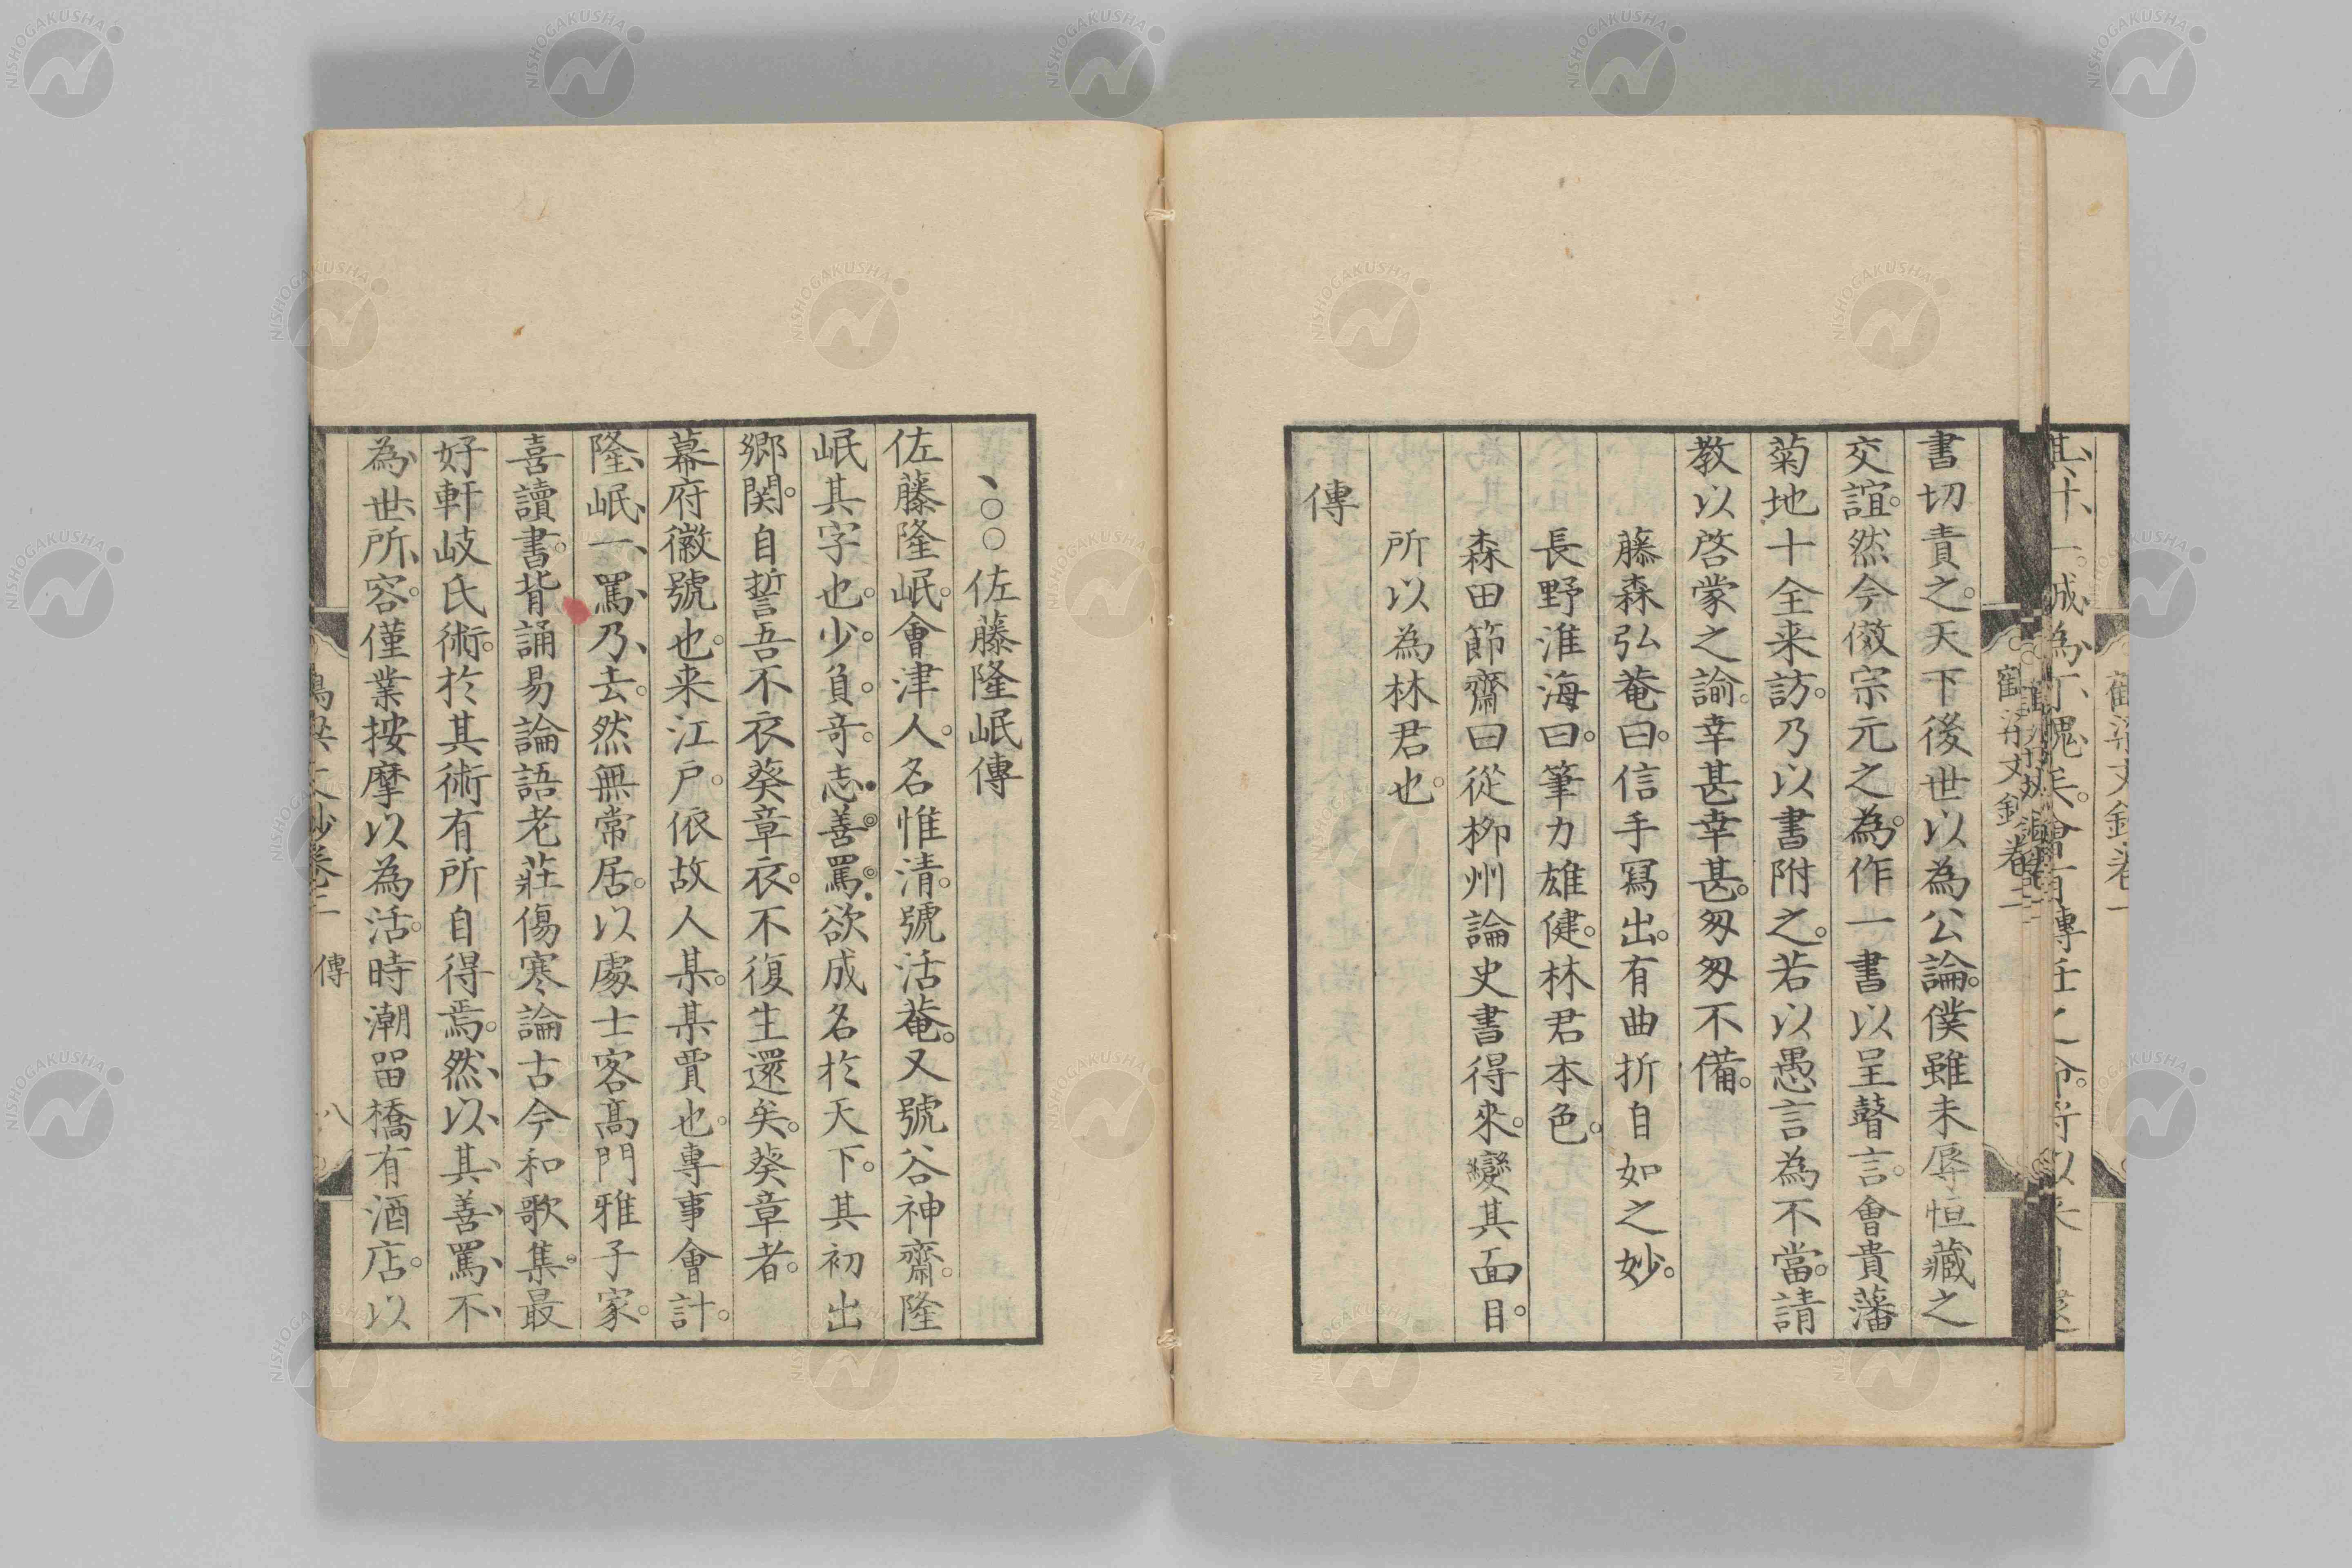 書切責之。天下後世以為公論。僕雖未辱恒藏之
交誼。然今儆宗元之為。作一書以呈瞽言。會貴藩
菊地十全来訪。乃以書附之。若以愚言為不當。請
教以啓蒙之諭。幸甚幸甚。匆匆不備。
藤森弘菴曰。信手寫出。有曲折自如之妙。
長野淮海曰。筆力雄健。林君本色。
森田節齋曰從柳州論史書得來。變其面目。
所以為林君也。
傳
鶴梁文鈔卷二
、○○佐藤隆岷傳
佐藤隆岷。會津人。名惟清。號活菴。又號谷神齋。隆
岷其字也。少負奇志。善罵。欲成名於天下。其初出
鄉関。自誓吾不衣葵章衣。不復生還矣。葵章者。
幕府徽號也。来江戸。依故人某。某賈也。專事會計。
隆岷一罵乃去。然無常居。以處士客高門雅子家。
喜讀書。背誦易論語老莊傷寒論古今和歌集。最
好軒岐氏術。於其術有所自得焉。然以其善罵不
為世所容。僅業按摩以為活。時潮畱橋有酒店。以
傳 八
NISHOGAKUSHA